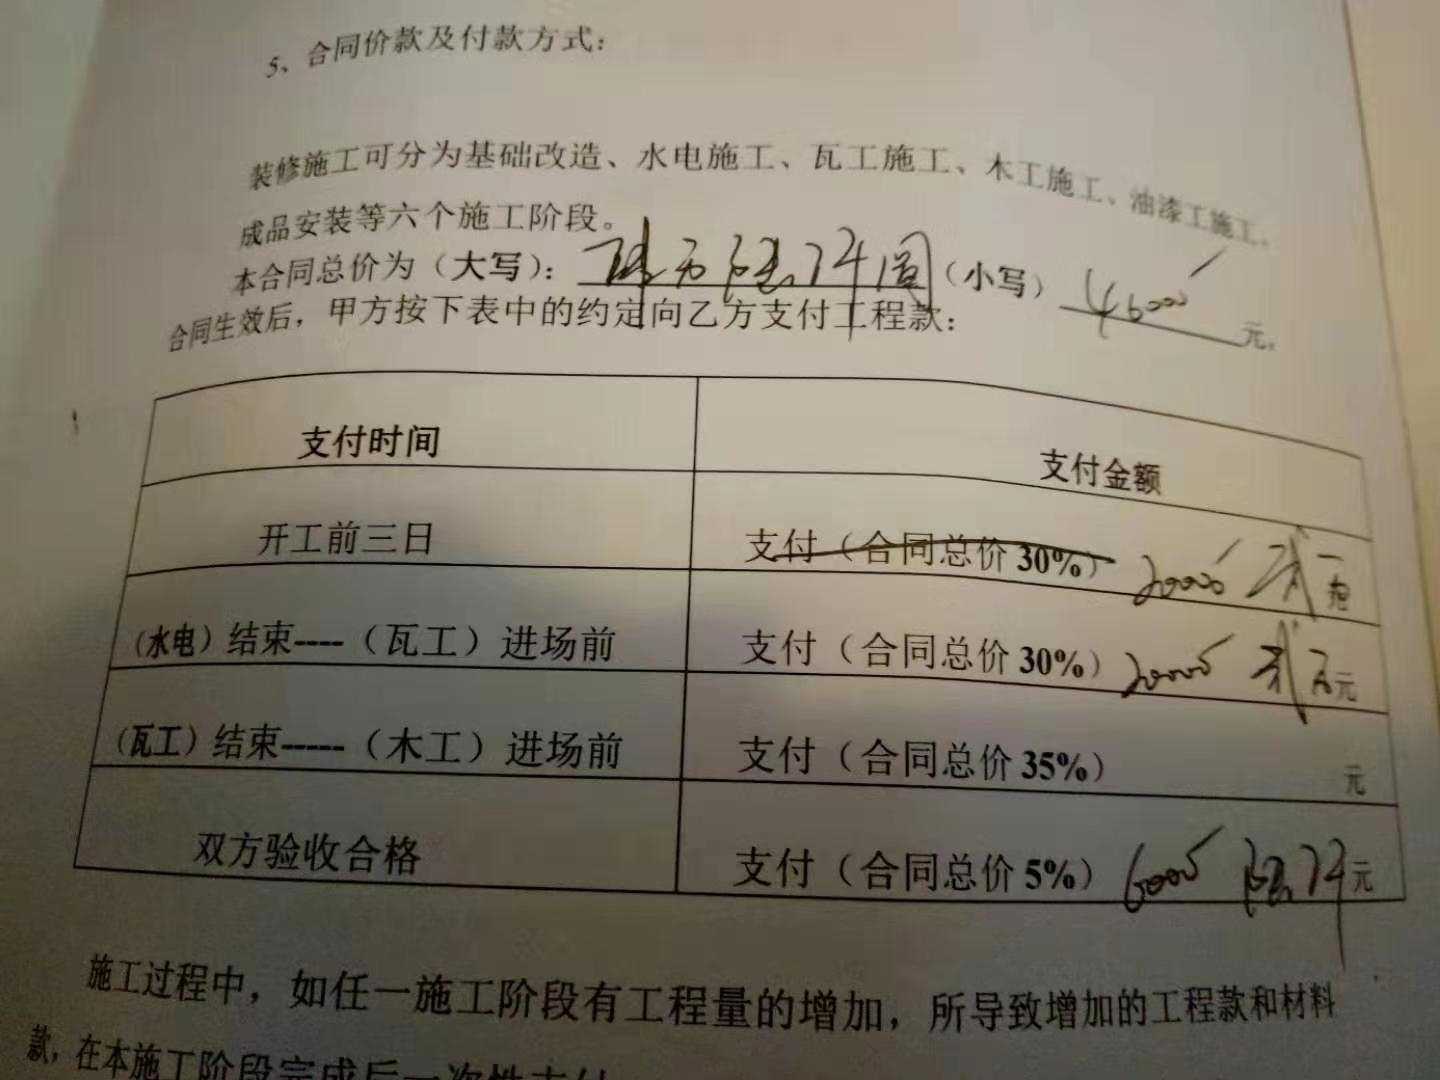 5、合同价款及付款方式：
装修施工可分为基础改造、水电施工、瓦工施工、木工施工、油漆工施工、
成品安装等六个施工阶段。
本合同总价为（大写）：肆万陆仟圆（小写）46000元。
合同生效后，甲方按下表中的约定向乙方支付工程款：
支付时间 支付金额
开工前三日 支付（合同总价 30%） 20000 贰
（水电）结束----（瓦工）进场前 支付（合同总价 30%） 20000 贰万元
（瓦工）结束-----（木工）进场前 支付（合同总价 35%） 元
双方验收合格 支付（合同总价 5%） 6000 陆仟元
施工过程中，如任一施工阶段有工程量的增加，所导致增加的工程款和材料
款，在本施工阶段完成后一次性支付